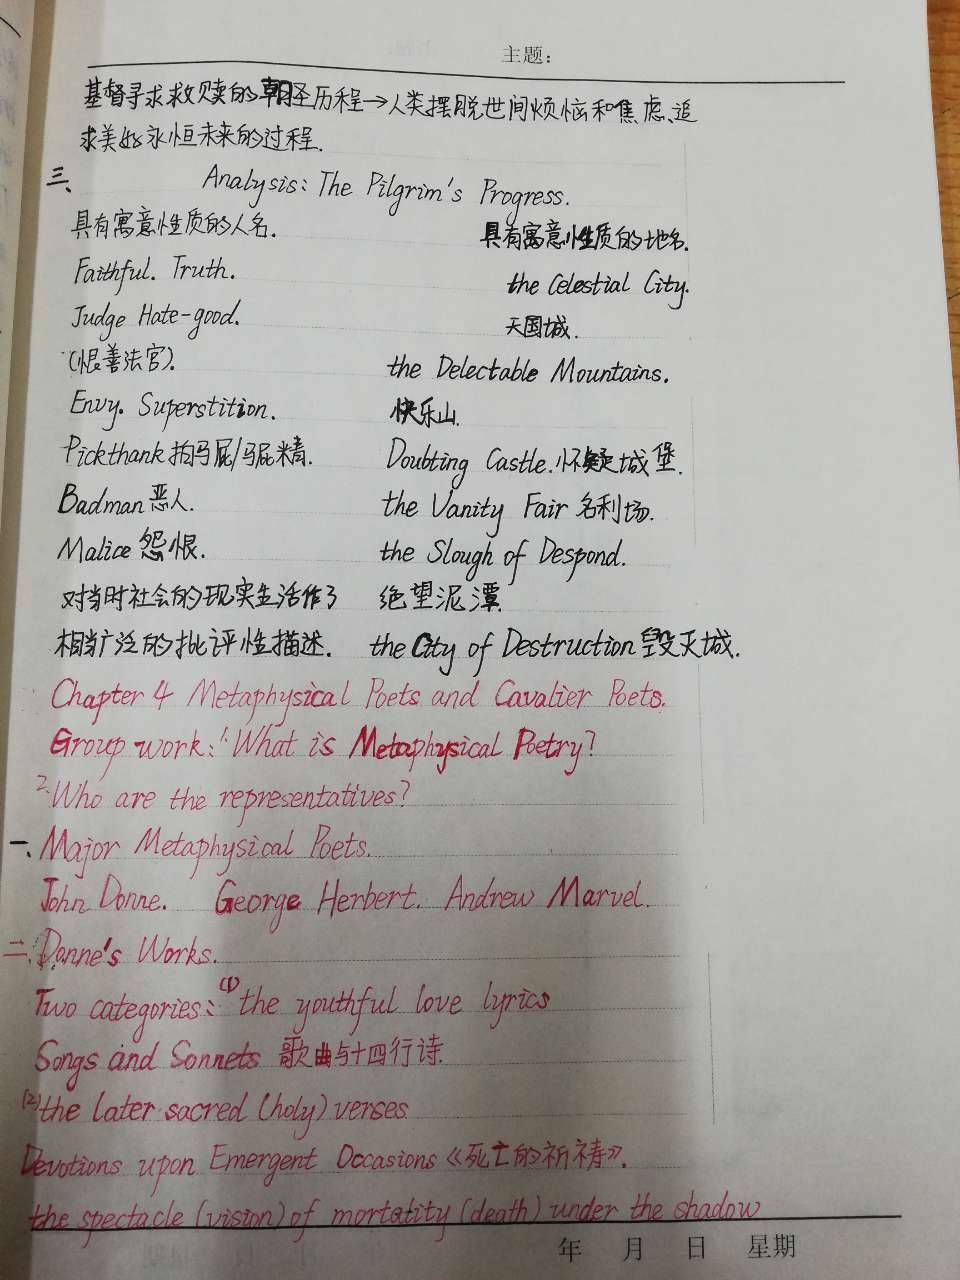 主题：
基督寻求救赎的朝圣历程→人类摆脱世间烦恼和焦虑、追
求美好永恒未来的过程.
三、 Analysis: The Pilgrim's Progress.
具有寓意性质的人名. 具有寓意性质的地名.
Faithful. Truth. the Celestial City.
Judge Hate-good. 天国城.
(恨善法官). the Delectable Mountains.
Envy. Superstition. 快乐山.
Pickthank拍马屁/马屁精. Doubting Castle.怀疑城堡.
Badman恶人. the Vanity Fair 名利场.
Malice 怨恨. the Slough of Despond.
对当时社会的现实生活作了 绝望泥潭.
相当广泛的批评性描述. the City of Destruction毁灭城.
Chapter 4 Metaphysical Poets and Cavalier Poets.
Group work: 1. What is Metaphysical Poetry?
2. Who are the representatives?
一、Major Metaphysical Poets.
John Donne. George Herbert. Andrew Marvel.
二、Donne's Works.
Two categories: (1) the youthful love lyrics
Songs and Sonnets 歌曲与十四行诗.
(2) the later sacred (holy) verses
Devotions upon Emergent Occasions《死亡的祈祷》.
the spectacle (vision) of mortality (death) under the shadow
年 月 日 星期